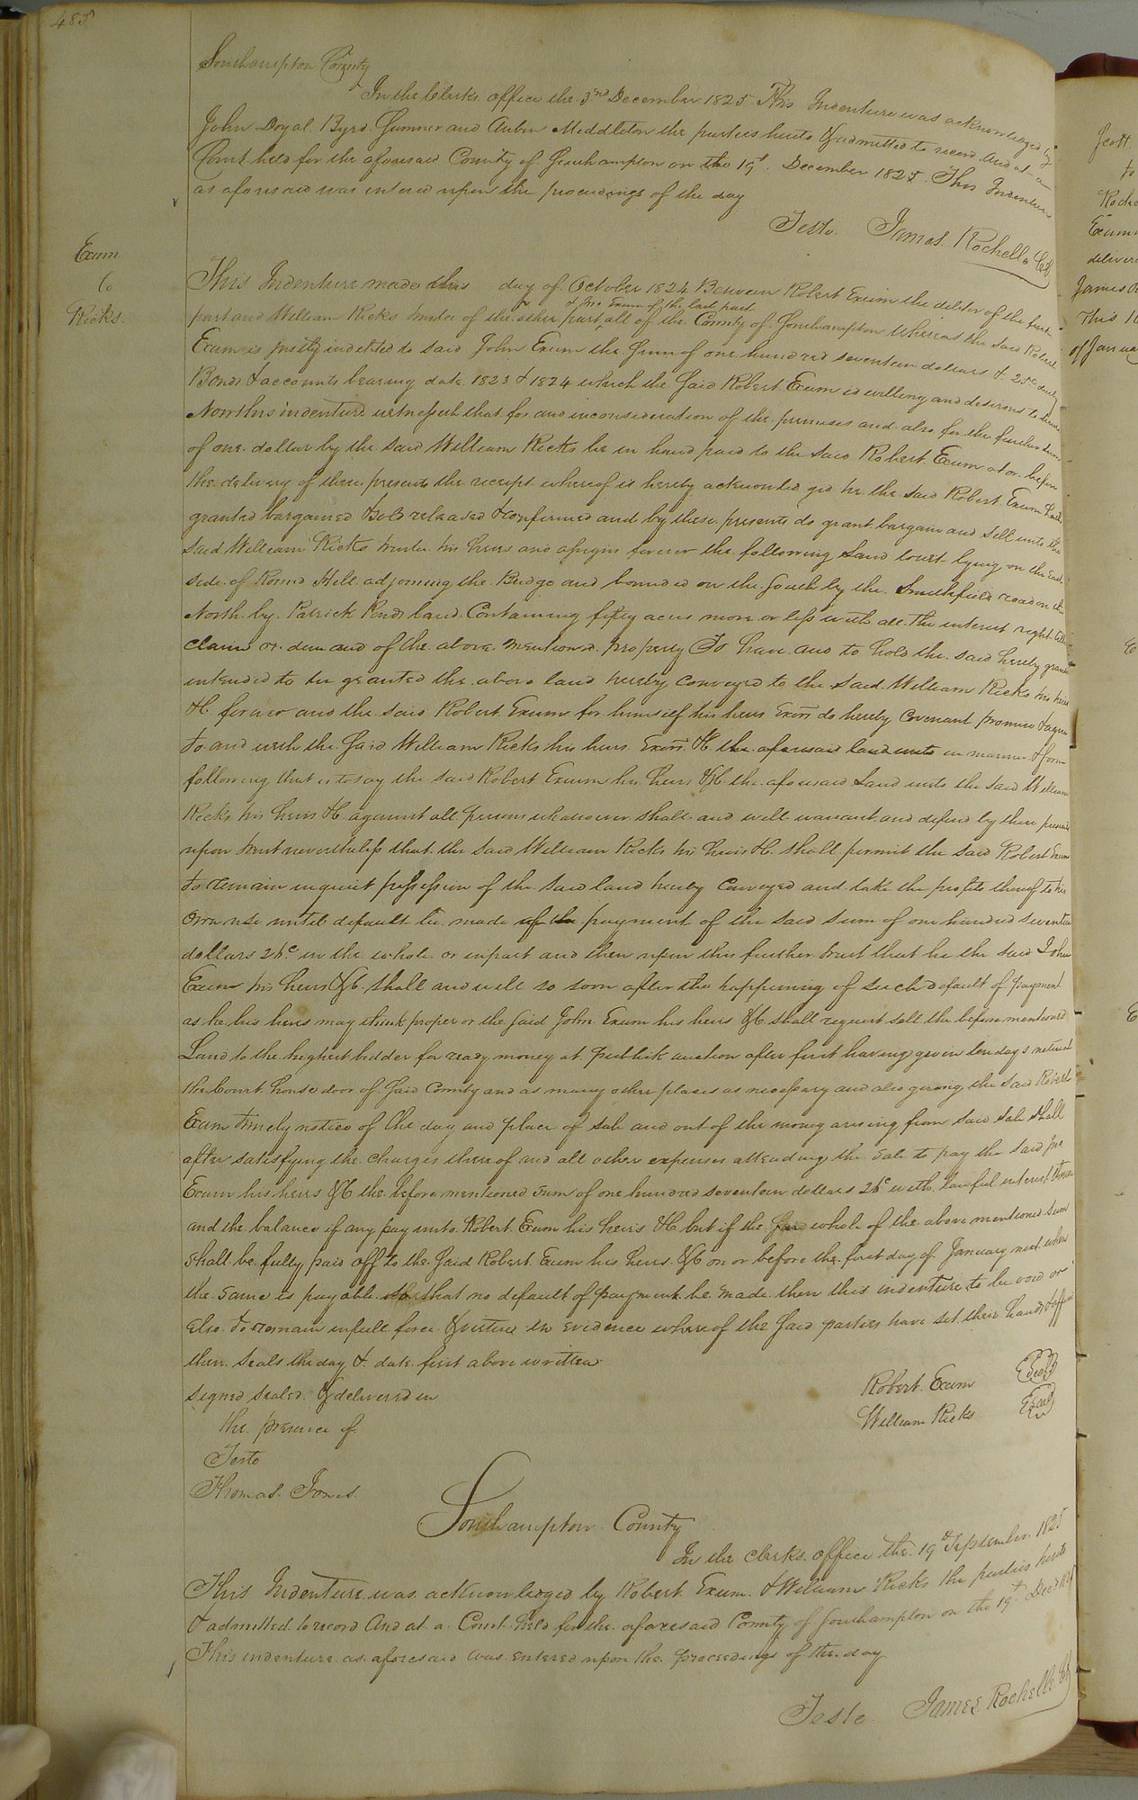 485
Southampton County
In the Clerks office the 3rd December 1825 This Indenture was acknowledged by
John Doyal Byrd Sumner and Middleton the parties hereto & admitted to record And at a
Court held for the aforesaid County of Southampton on the 19t. December 1825 This Indenture
as aforesaid was entered upon the proceedings of the day
Teste James Rochelle Clk
Exum
to
Ricks
This Indenture made this day of October 1824 Between Robert Exum the debtor of the first
& Jno Exum of the last part
part and William Ricks trustee of the other part all of the County of Southampton Whereas the said Robert
Exum is justly indebted to said John Exum the Sum of one hundred seventeen dollars & 25c
Bonds & accounts bearing date 1823 & 1824 which the said Robert Exum is willing and desirous to secure
Now this indenture witnesseth that for and inconsideration of the premises and also for the further sum
of one dollar by the said William Ricks he in hand paid to the said Robert Exum at or before
the delivery of these presents the receipt whereof is hereby acknowledged he the said Robert Exum hath
granted bargained & sold released & confirmed and by these presents do grant bargain and sell unto the
said William Ricks trustee his heirs and assigns forever the following Land to wit lying on the East
side of Round Hill adjoining the Bridge and bounded on the South by the Smithfield road on the
North by Patrick land Containing fifty acres more or less with all the interest right title
claim or demand of the above mentioned property To have and to hold the said hereby granted
intended to be granted the above land hereby conveyed to the said William Ricks his heirs
&C forever and the said Robert Exum for himself his heirs Exors do hereby Covenant promise & agree
to and with the said William Ricks his heirs Exors &C the aforesaid land unto in manner & form
following that is to say the said Robert Exum his heirs &C the aforesaid Land unto the said William
Ricks his heirs &C against all persons whatsoever shall and will warrant and defend by these presents
upon trust nevertheless that the said William Ricks his heirs &C shall permit the said Robert Exum
to remain in quiet possession of the said land hereby conveyed and take the profits thereof to his
own use until default be made of the payment of the said sum of one hundred seventeen
dollars 25c in the whole or in part and then upon this further trust that he the said John
Exum his heirs &C shall and will so soon after the happening of such default of payment
as he his heirs may think proper or the said John Exum his heirs &C shall request sell the before mentioned
Land to the highest bidder for ready money at publick auction after first having given ten days notice at
the Court house door of said County and as many other places as necessary and also giving the said Robert
Exum timely notice of the day and place of sale and out of the money arising from said sale shall
after satisfying the charges thereof and all other expenses attending the sale to pay the said Jno
Exum his heirs &C the before mentioned sum of one hundred seventeen dollars 25c with lawful interest thereon
and the balance if any pay unto Robert Exum his heirs &C but if the whole of the above mentioned sum
shall be fully paid off to the said Robert Exum his heirs &C on or before the first day of January next when
the same is payable so that no default of payment be made then this indenture to be void or
else to remain in full force & virtue in evidence whereof the said parties have set their hands & affixed
their seals the day & date first above written
Signed sealed & delivered in
the presence of
Teste
Thomas Jones
Robert Exum Seal
William Ricks Seal
Southampton County
In the clerks office the 19th September 1825
This Indenture was acknowledged by Robert Exum & William Ricks the parties hereto
& admitted to record And at a Court held for the aforesaid County of Southampton on the 19t Decr 1825
This indenture as aforesaid was entered upon the proceedings of the day
Teste James Rochelle Clk
Scott
to
Exum
deliver
James
This
of January